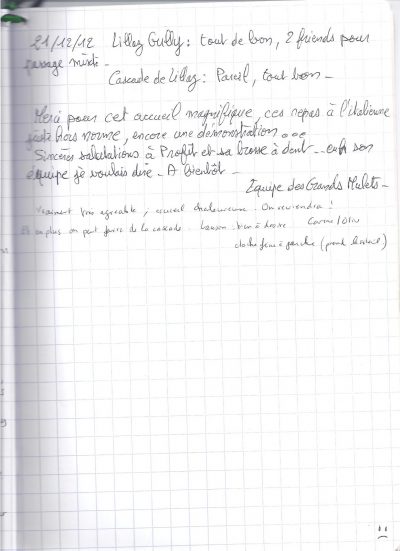 21/12/12 Lillaz Gully : tout de bon, 2 friends pour
passage mixte -
Cascade de Lillaz : Pareil, tout bon -
Merci pour cet accueil magnifique, ces repas à l'italienne
juste hors norme, encore une démonstration...
Sincères salutations à Profit et sa brosse à dent... euh son
équipe je voulais dire - A bientôt -
Equipe des Grands Mulets -
Vraiment très agréable, accueil chaleureux. On reviendra !
Et en plus on peut faire de la cascade
à droite
à gauche